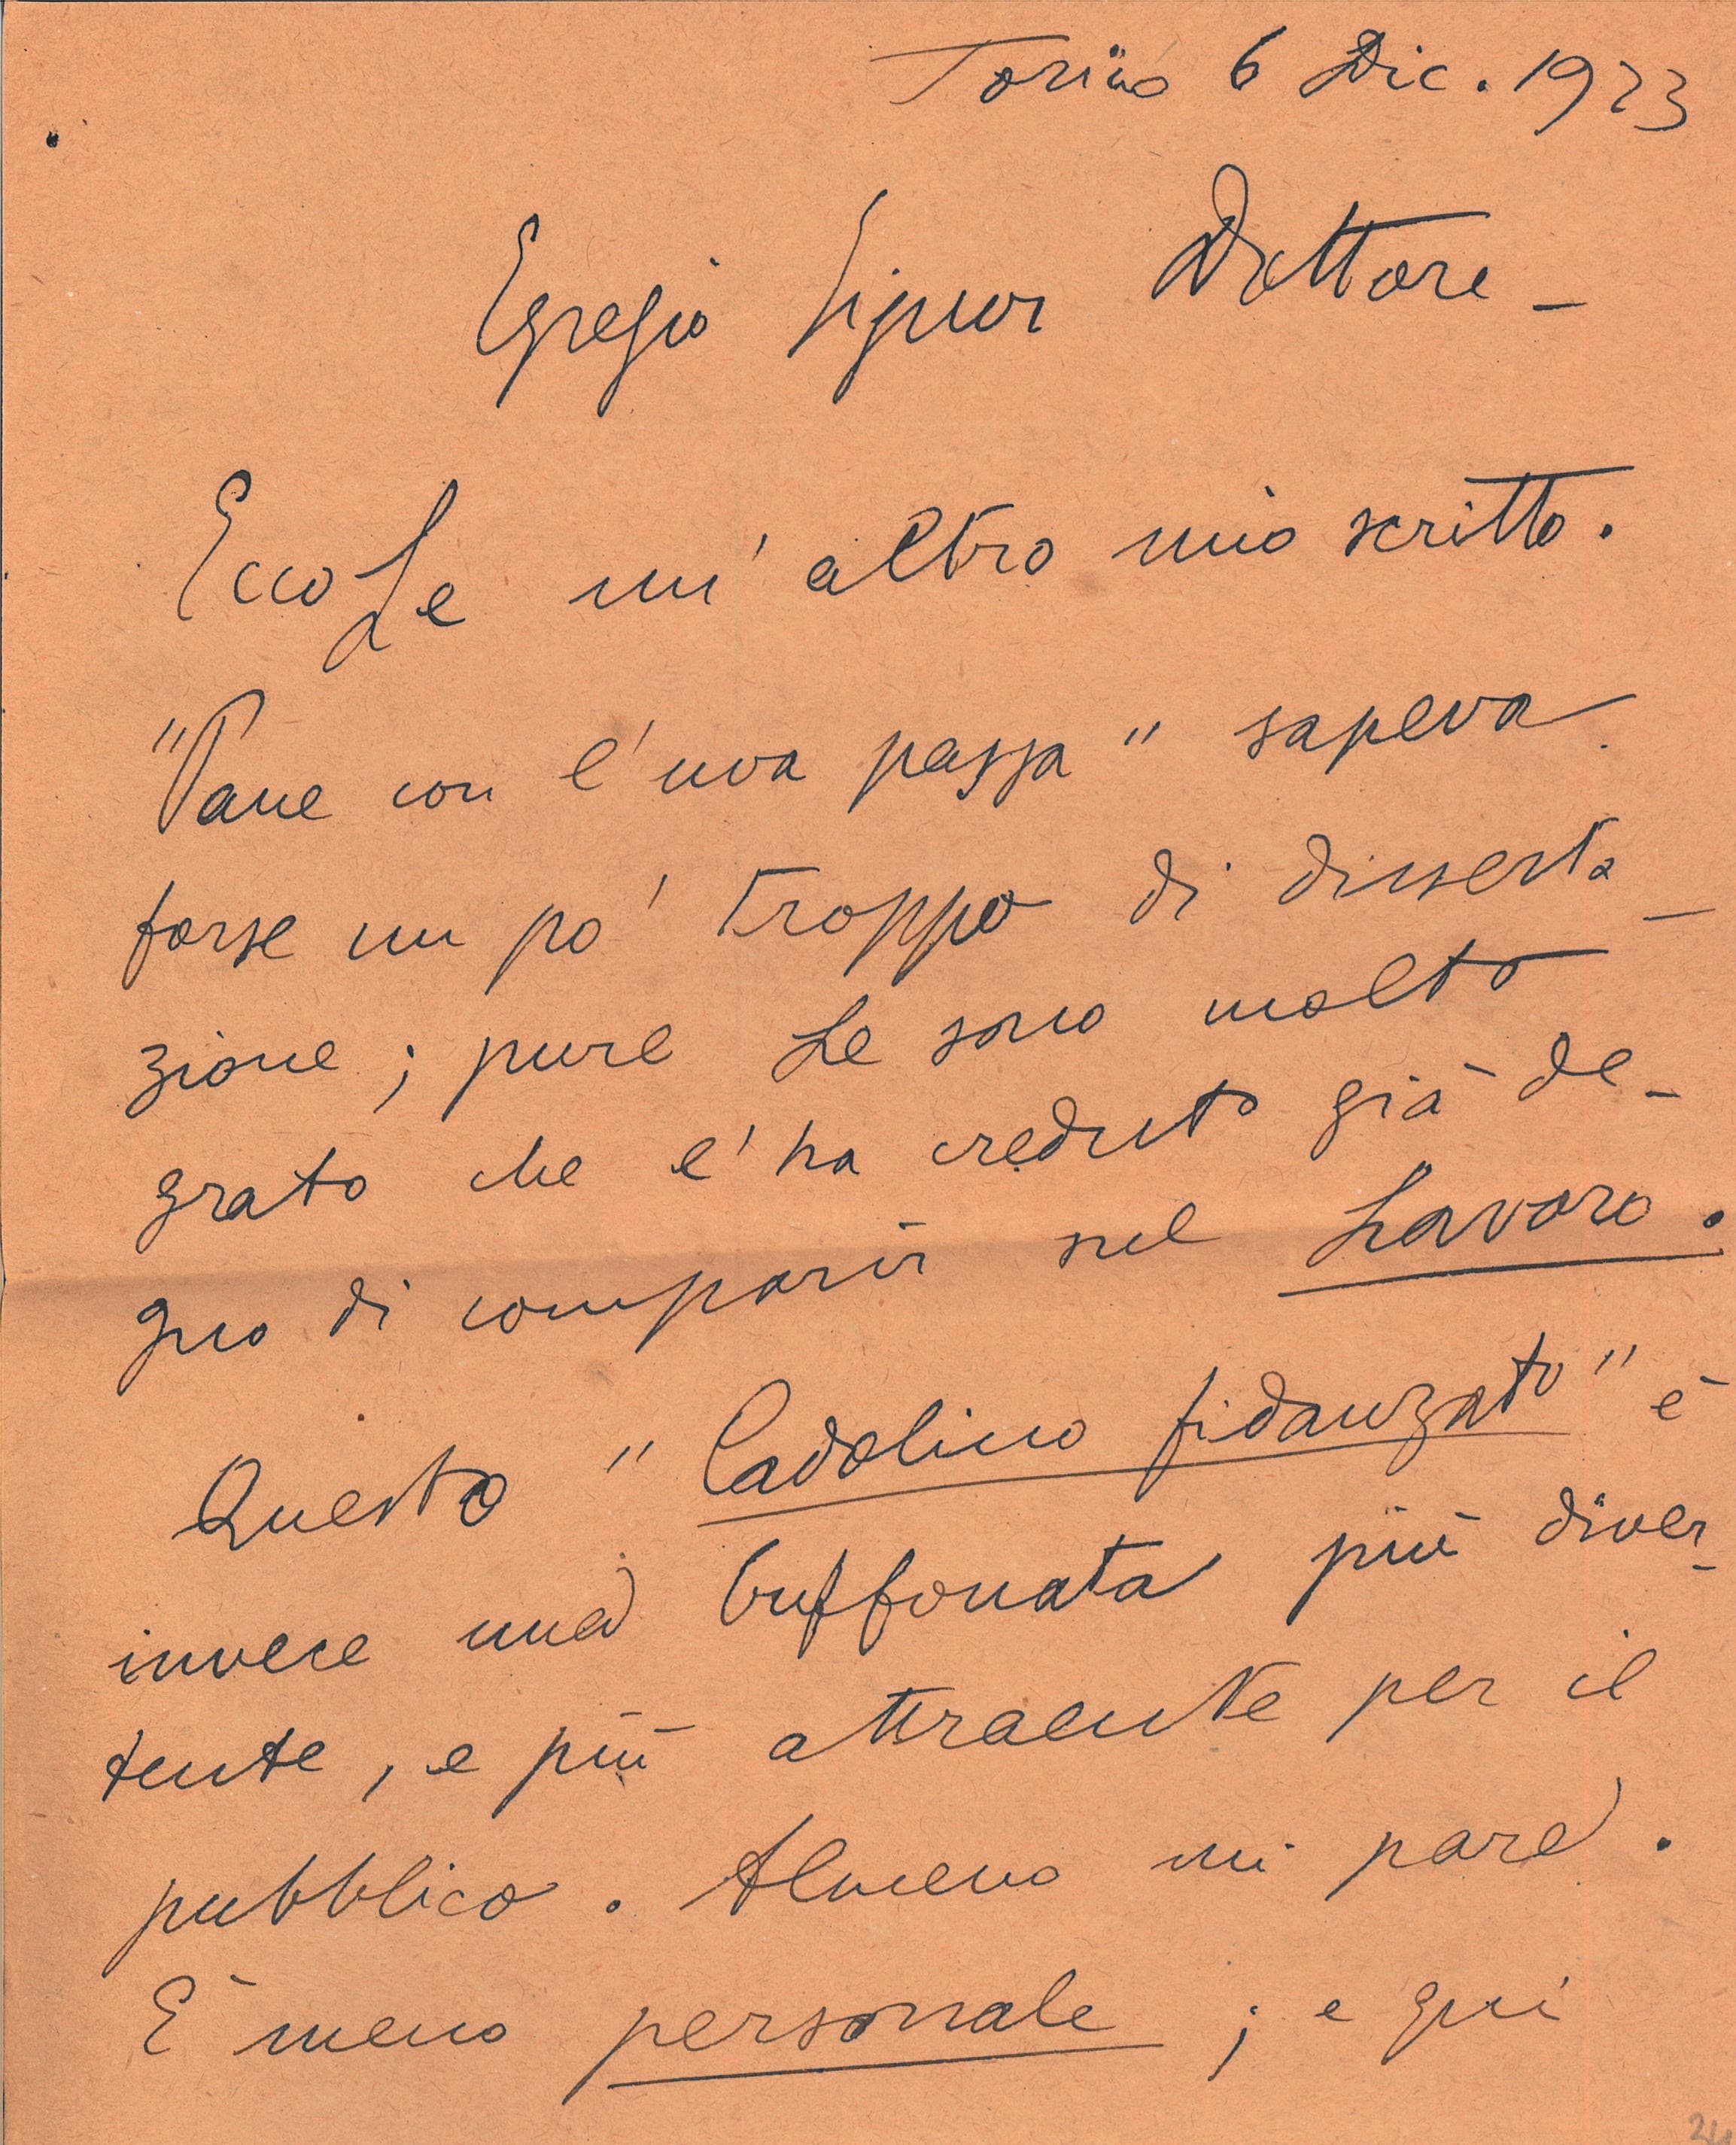 Torino 6 Dic. 1923
Egregio Signor Dottore -
Ecco Le un' altro mio scritto.
"Pane con l'uva passa" sapeva
forse un po' troppo di disserta-
zione; pure Le sono molto
grato che l'ha creduto già de-
gno di comparir sul Lavoro.
Questo "Cadolino fidanzato" è
invece una buffonata più diver-
tente, e più attraente per il
pubblico. Almeno mi pare.
È meno personale; e qui